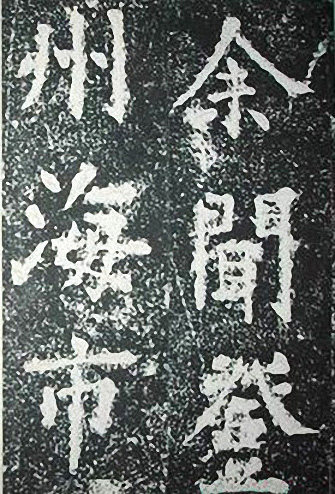 余聞登
州海市